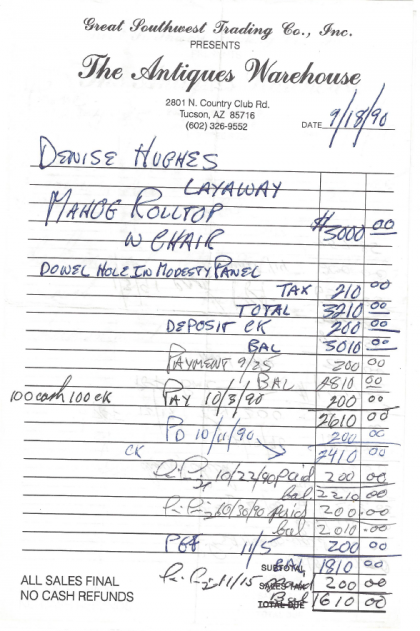 Great Southwest Trading Co., Inc.
PRESENTS
The Antiques Warehouse
2801 N. Country Club Rd.
Tucson, AZ 85716
(602) 326-9552
DATE 9/18/90
DENISE HUGHES
LAYAWAY
MAHOG ROLLTOP $3000 00
W CHAIR
DOWEL HOLE IN MODESTY PANEL
TAX 210 00
TOTAL 3210 00
DEPOSIT CK 200 00
BAL 3010 00
PAYMENT 9/25 200 00
BAL 2810 00
100 cash 100 ck PAY 10/3/90 200 00
2610 00
PD 10/11/90 200 00
CK 2410 00
10/22/90 paid 200 00
bal. 2210 00
10/30/90 paid 200.00
bal 2010.00
11/5 200 00
SUBTOTAL BAL 1810 00
11/15 SALES TAX paid 200 00
TOTAL DUE Bal 1610 00
ALL SALES FINAL
NO CASH REFUNDS